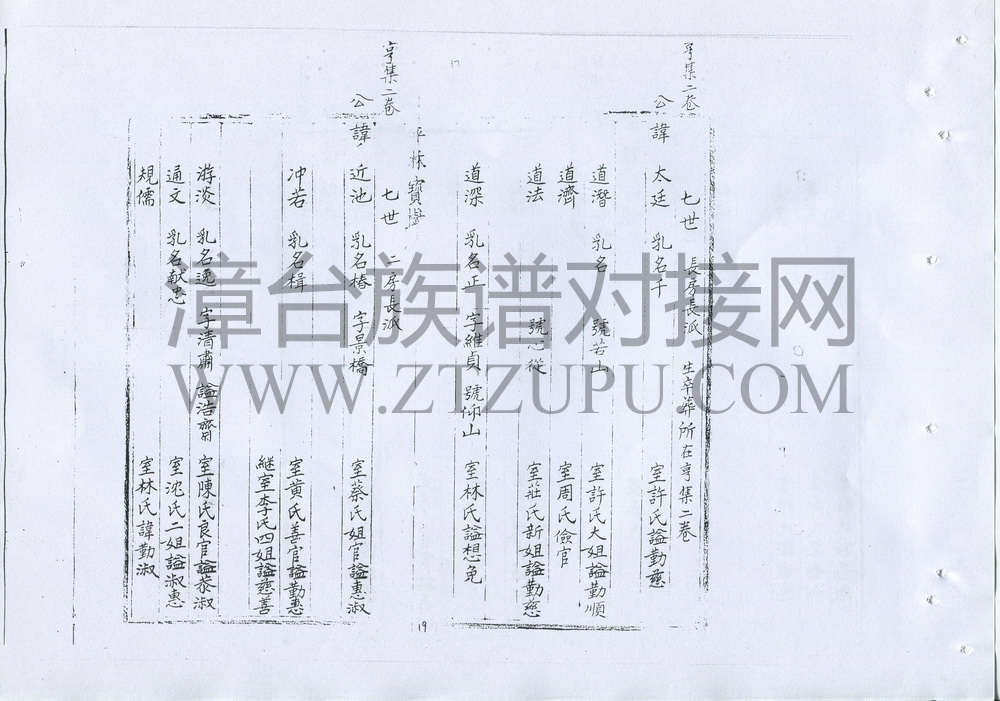 亨集二卷
公
諱
七世 長房長派 生卒葬所在亨集二卷
太廷 乳名千 室許氏謚勤慈
道潛 乳名 號若山 室許氏大姐謚勤順
道濟 室周氏儉官
道法 號心從 室莊氏新姐謚勤慈
道深 乳名正 字維貞 號仰山 室林氏謚想免
17
林寶
19
亨集二卷
公
諱
七世 二房長派
近池 乳名椿 字景橋 室蔡氏姐官謚惠淑
冲若 乳名楫 室黄氏善官謚勤惠
継室李氏四姐謚慈善
游淡 乳名逸 字清肅 謚浩齋 室陳氏良官謚恭淑
通文 乳名献忠 室沈氏二姐謚淑惠
規儒 室林氏諱勤淑
漳台族谱对接网
WWW.ZTZUPU.COM